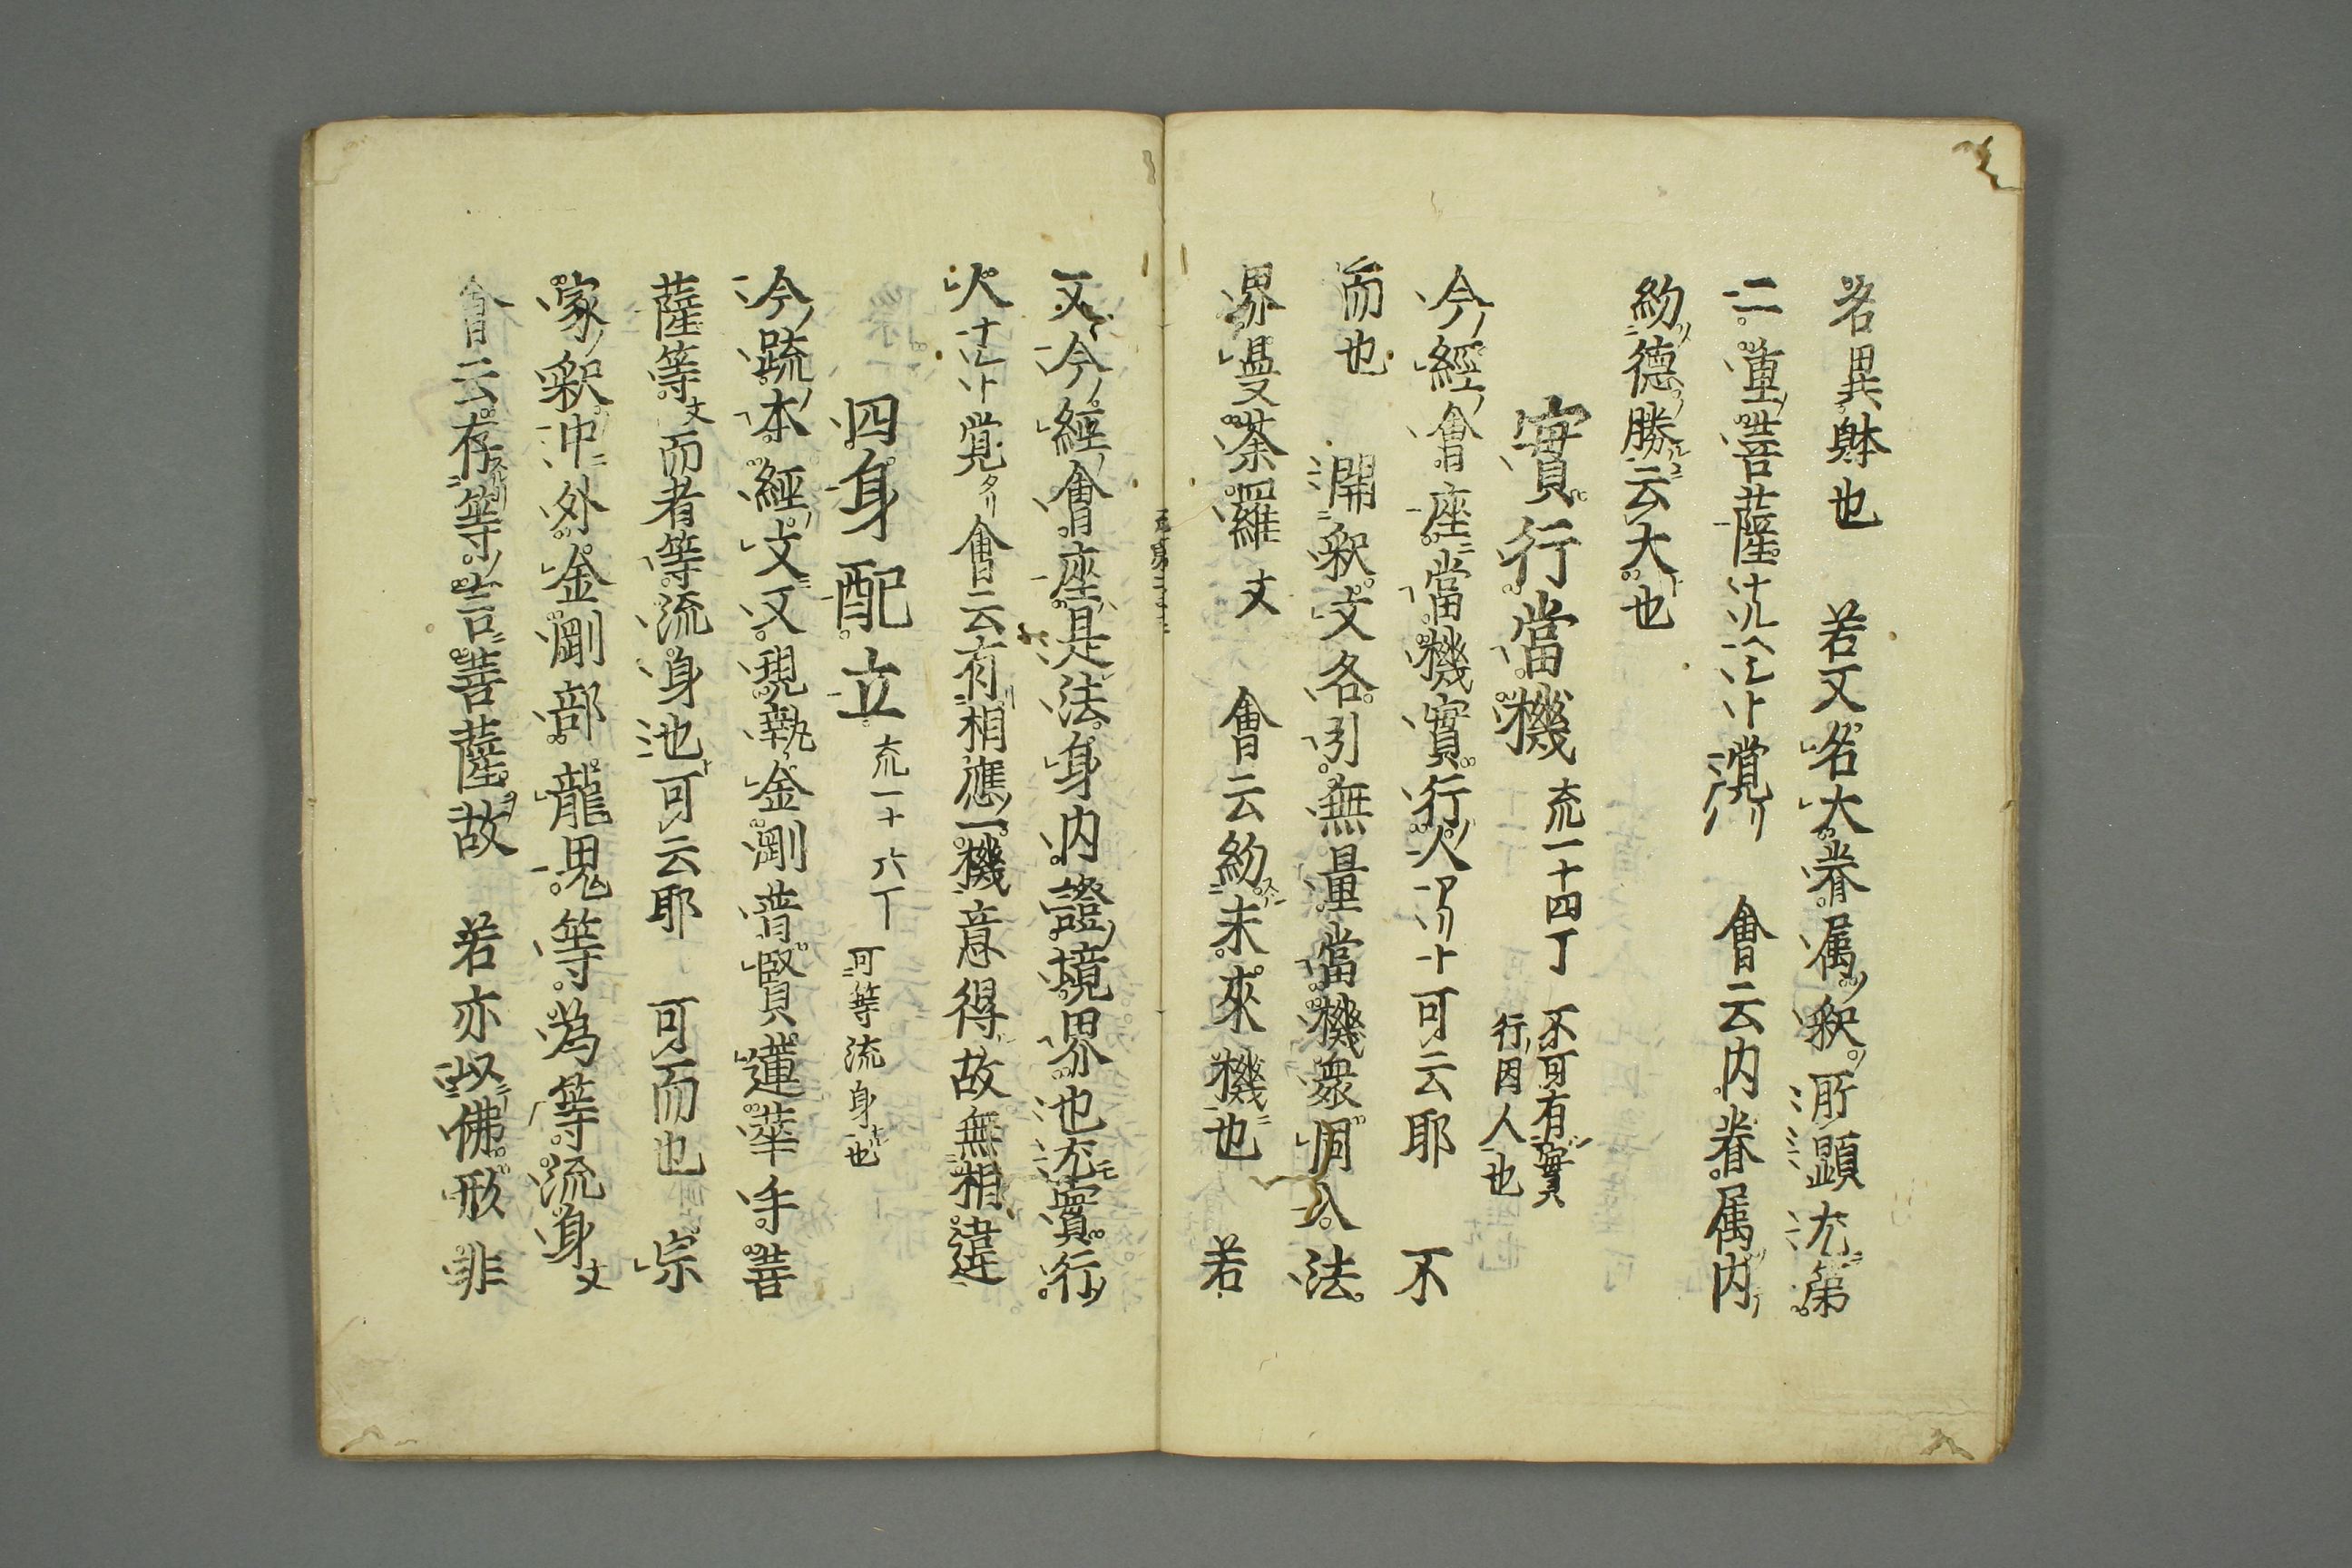 名異躰也　若又名大眷属釈所顕流第
二重菩薩　覚　會云内眷属内
約德勝云大也
實行當機 流一十四丁 不可有實
行因人也
今經會座當機實行人　可云耶　不
而也　開釈文各引無量當機衆同入法
界曼荼羅文　會云約未來機也　若
又今經會座是法身内證境界也流實行
人　覚　會云有相應一機意得故無相違
四身配立 流一十六丁 可等流身也
今疏本經文又現執金剛普賢蓮華手菩
薩等文而者等流身也可云耶　可而也　宗
家釈中外金剛部龍鬼等為等流身文
會云存等言菩薩故　若亦以佛形非